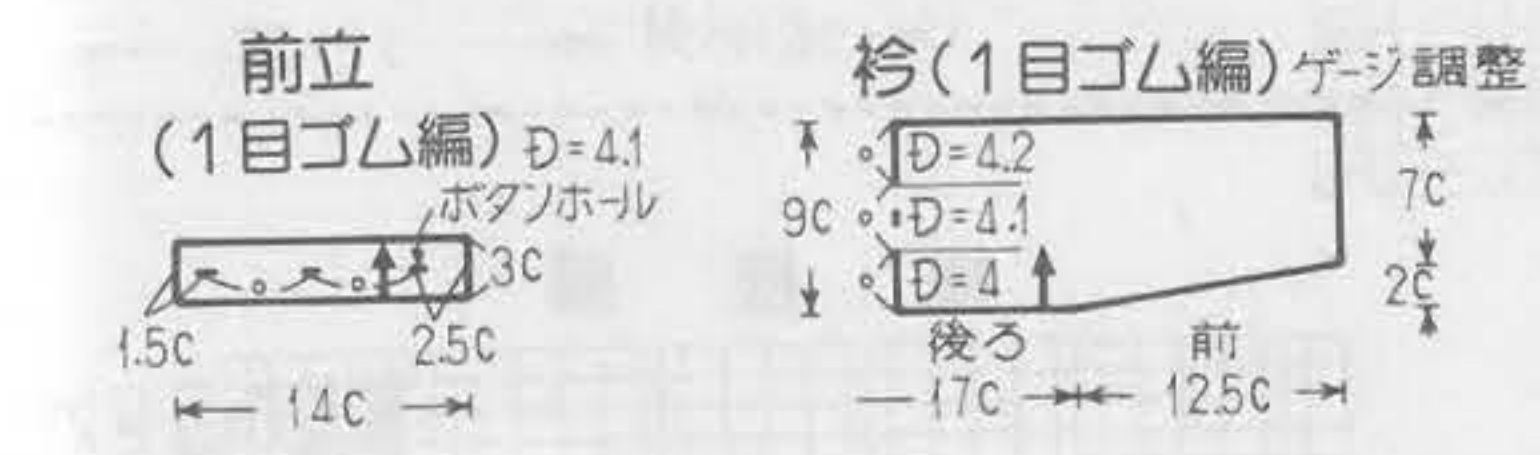 前立
(1目ゴム編) Đ=4.1
ボタンホール
3C
1.5C
2.5C
14C
衿(1目ゴム編)ゲージ調整
Đ=4.2
9C
Đ=4.1
Đ=4
7C
2C
後ろ
前
17C
12.5C